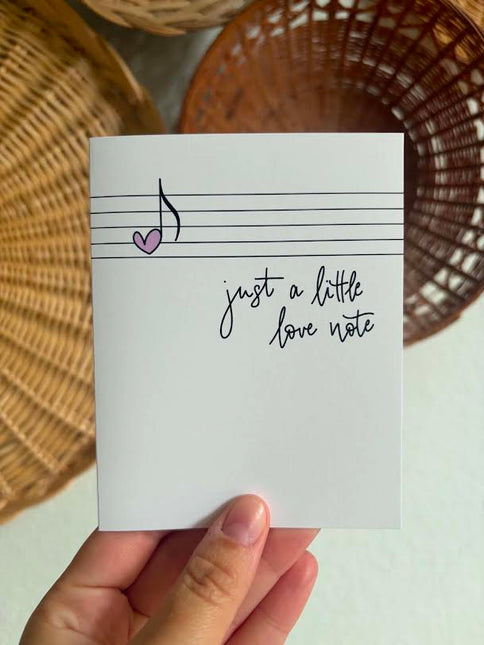 just a little
love note